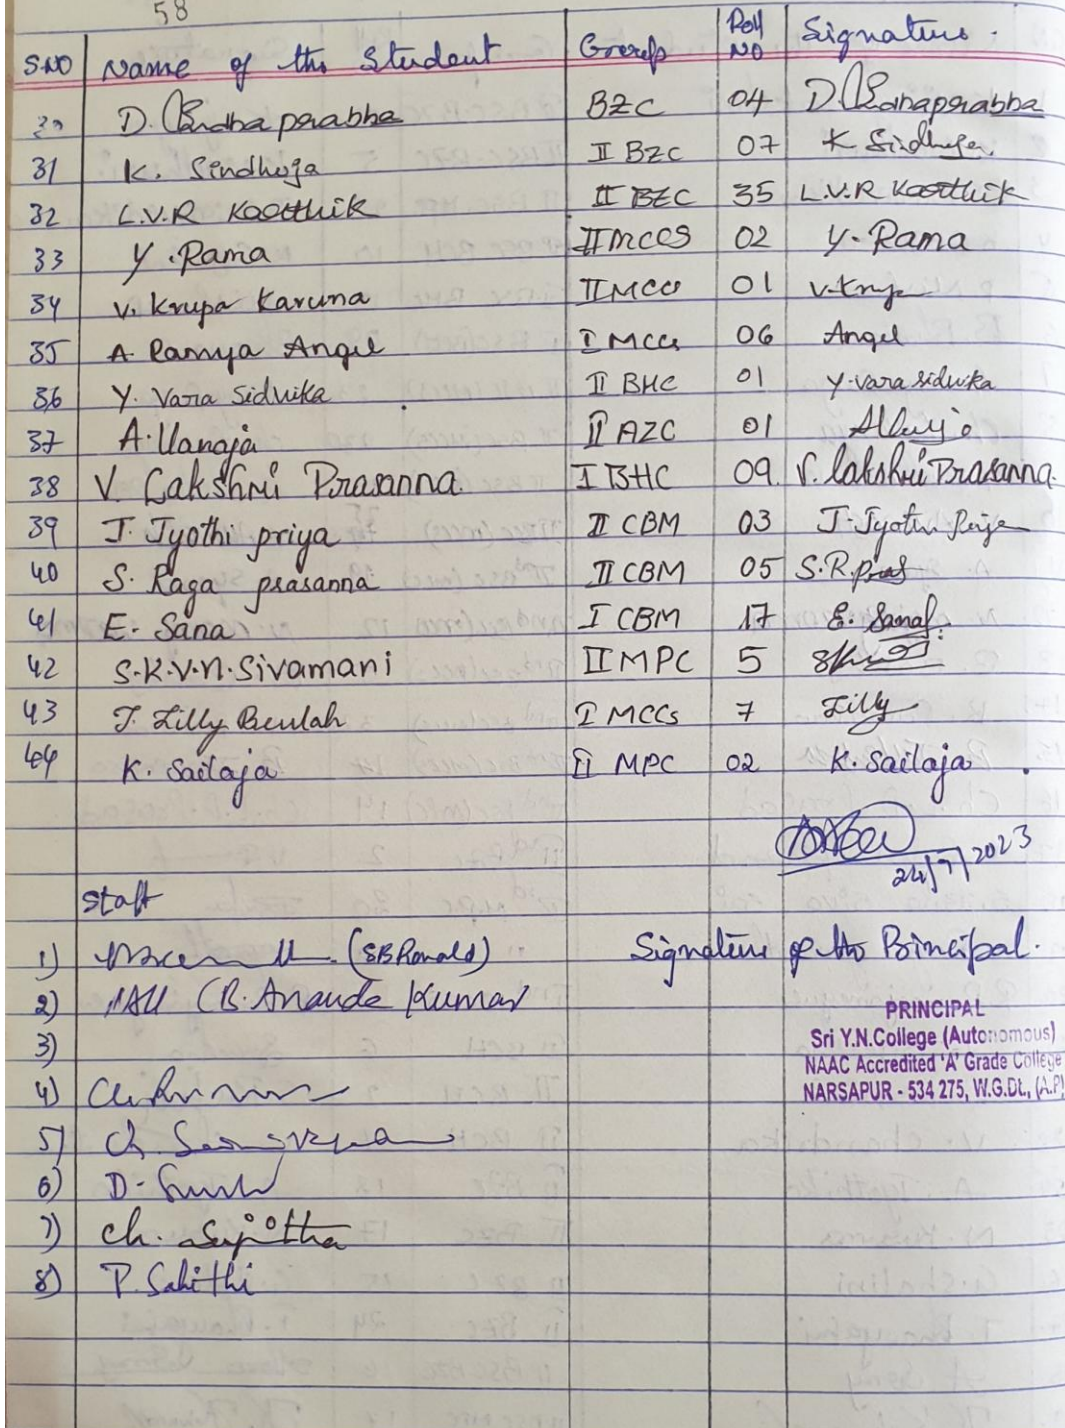 58
S.NO Name of the Student Group Roll NO Signature.
D. Radha prabha BZC 04 D. Radhaprabha
31 K. Sindhuja II BZC 07 K Sindhuja.
32 L.V.R Karthik II BZC 35 L.V.R Karthik
33 Y. Rama II MCCS 02 Y. Rama
34 V. Krupa Karuna II MCCS 01 V. Krupa
35 A Ramya Angel I MCCs 06 Angel
36 Y. Vara Sidvika II BHC 01 Y. vara sidvika
37 A. Vanaja II AZC 01
38 V. Lakshmi Prasanna. I BHC 09 V. lakshmi Prasanna.
39 J. Jyothi priya II CBM 03 J. Jyothi Priya
40 S. Raga prasanna II CBM 05 S.R.pras
41 E. Sana I CBM 17 E. Sana
42 S.K.V.N.Sivamani II MPC 5
43 J. Lilly Beulah I MCCs 7 Lilly
44 K. Sailaja II MPC 02 K. Sailaja
24/7/2023
Staff
1) (SB Ronald) Signature of the Principal.
2) (B. Ananda Kumar
PRINCIPAL
Sri Y.N.College (Autonomous)
3)
NAAC Accredited 'A' Grade College
4)
NARSAPUR - 534 275, W.G.Dt., (A.P)
5) Ch.
6) D.
7) Ch. Sujitha
8) P. Sahithi